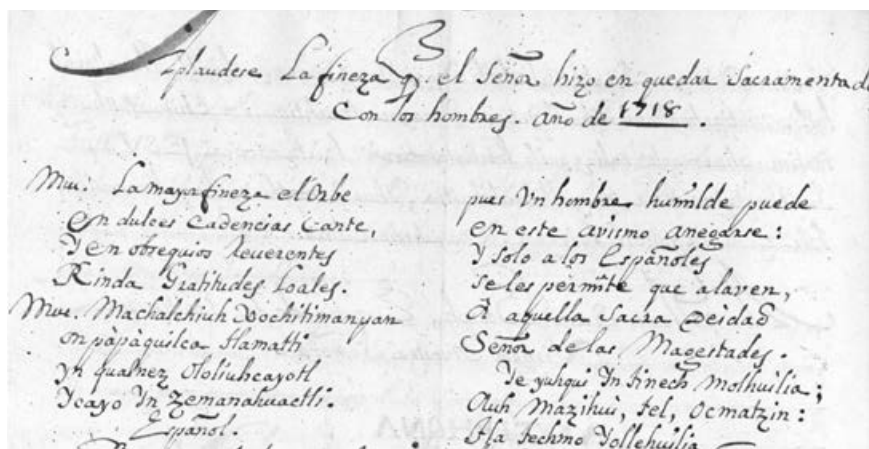 Aplaudese La fineza q. el Señor hizo en quedar Sacramentado
Con los hombres. año de 1718.
Mus: La maya fineza el Orbe
en dulces Cadencias Cante,
Y en obsequios Reverentes
Rinda Gratitudes Loales.
Mus. Machalchiuh Xochitimanyan
on pàpàquilca tlamatti
yn qualnez Ololiuhcayotl
Ycayo Yn Zemanahuactli.
Español.
pues Vn hombre humilde puede
en este avismo anegarse:
Y solo a los Españoles
se les permite que alaven,
A aquella Sacra Deidad
Señor de las Magestades.
Ye yuhqui Yn tinech molhuilia;
Auh Mazihui, tel, Ocmatzin:
Yollehuilia